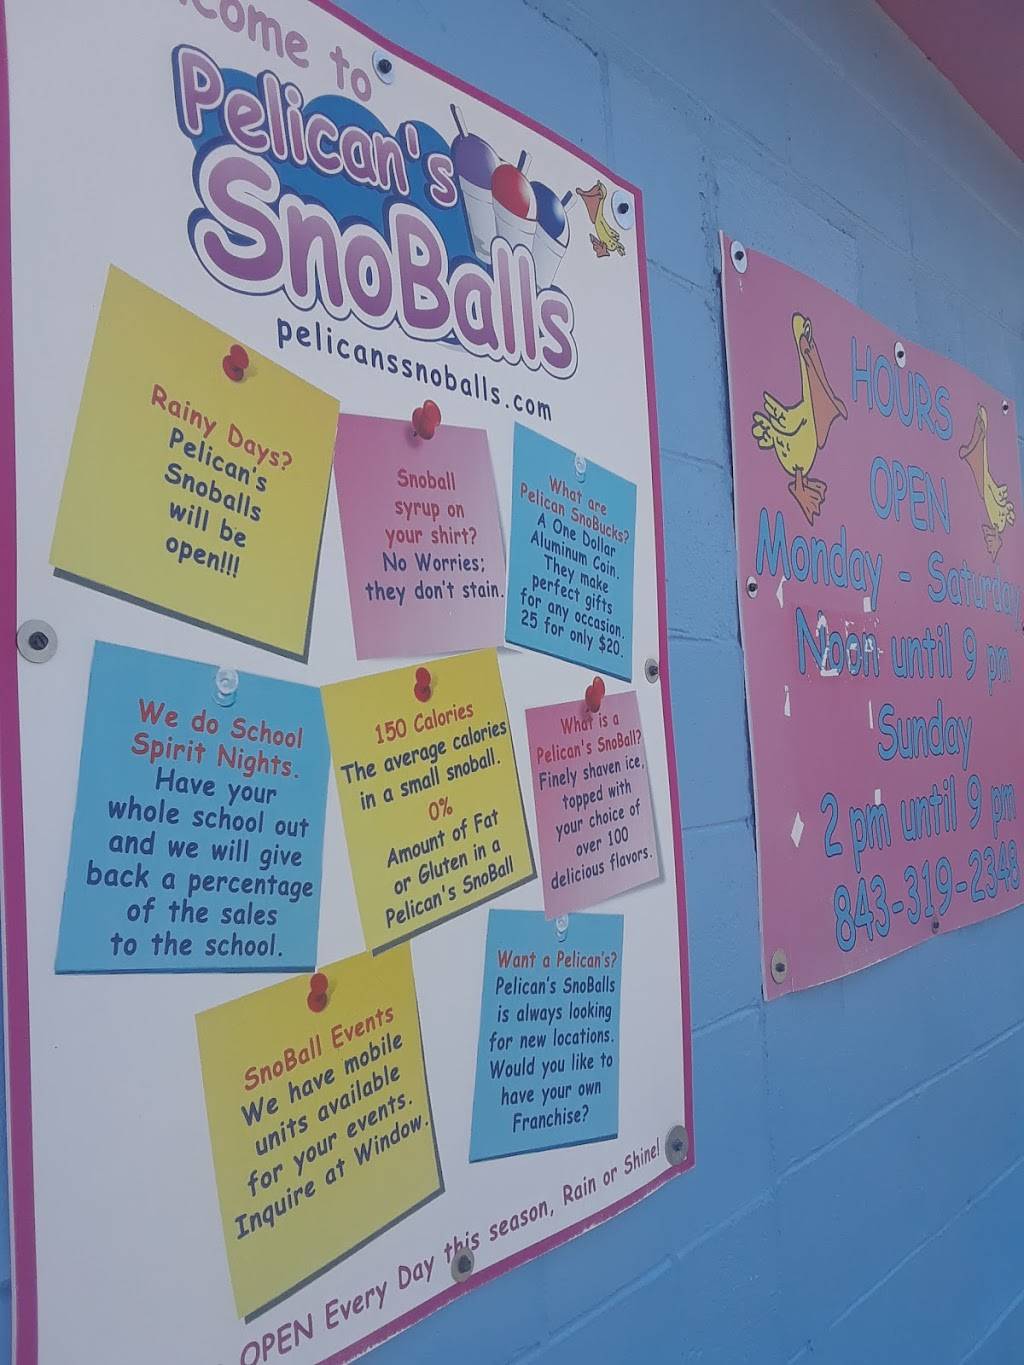 come to
Pelican's
SnoBalls
pelicanssnoballs.com
Rainy Days?
Pelican's
Snoballs
will be
open!!!
Snoball
syrup on
your shirt?
No Worries;
they don't stain.
What are
Pelican SnoBucks?
A One Dollar
Aluminum Coin.
They make
perfect gifts
for any occasion.
25 for only $20.
We do School
Spirit Nights.
Have your
whole school out
and we will give
back a percentage
of the sales
to the school.
150 Calories
The average calories
in a small snoball.
0%
Amount of Fat
or Gluten in a
Pelican's SnoBall
What is a
Pelican's SnoBall?
Finely shaven ice,
topped with
your choice of
over 100
delicious flavors.
SnoBall Events
We have mobile
units available
for your events.
Inquire at Window.
Want a Pelican's?
Pelican's SnoBalls
is always looking
for new locations.
Would you like to
have your own
Franchise?
OPEN Every Day this season, Rain or Shine!
HOURS
OPEN
Monday - Saturday
Noon until 9 pm
Sunday
2 pm until 9 pm
843-319-2348